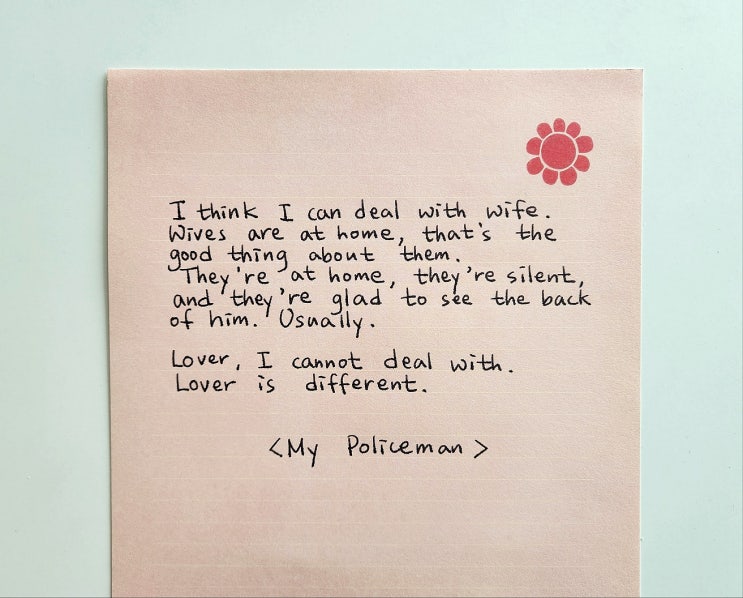 I think I can deal with wife.
Wives are at home, that's the
good thing about them.
They're at home, they're silent,
and they're glad to see the back
of him. Usually.
Lover, I cannot deal with.
Lover is different.
<My Policeman>